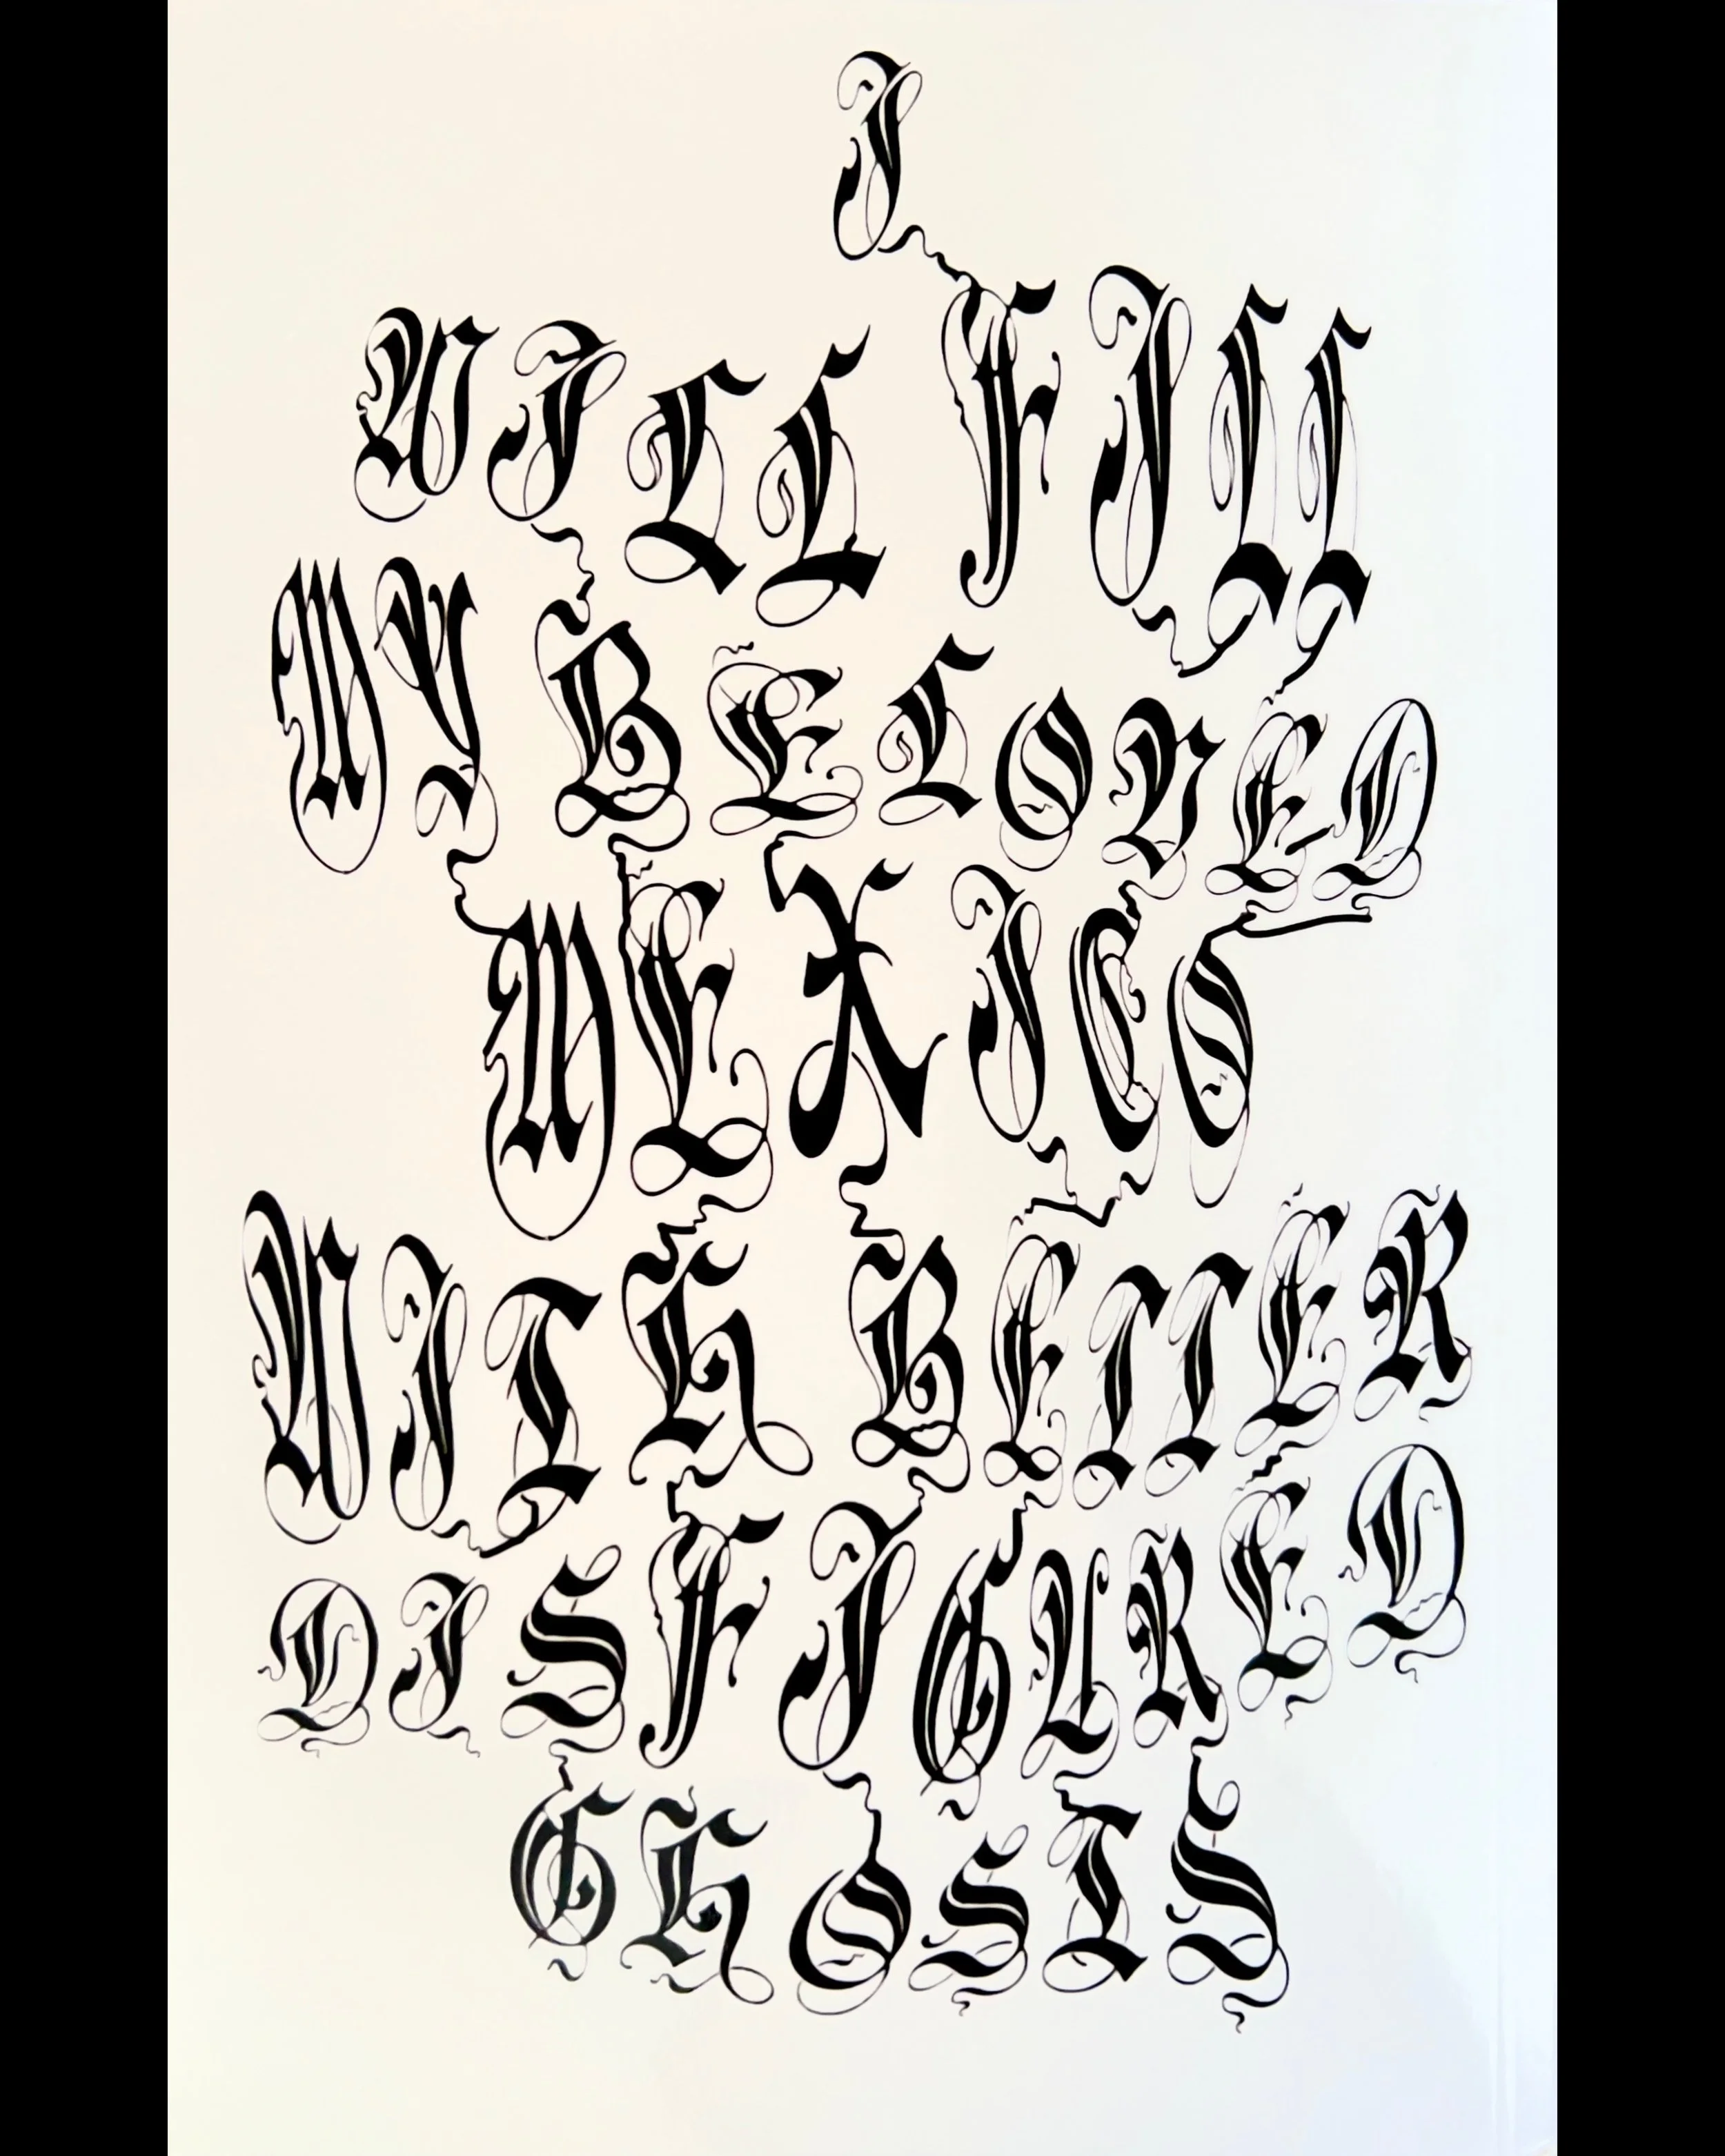 I
WILL FILL
MY BELOVED
MEXICO
WITH BETTER
DISFIGURED
GHOSTS